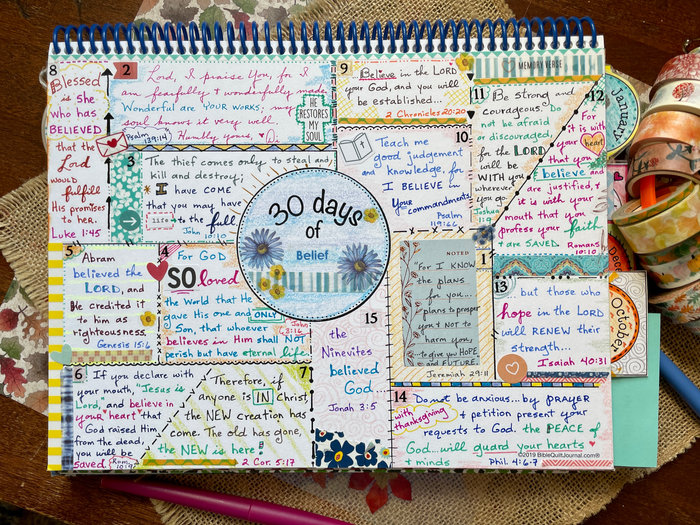 8
Blessed
is she
who has
BELIEVED
that the
Lord
would
fulfill
His promises
to her.
Luke 1:45
2
Lord, I praise You, for I
am fearfully & wonderfully made
Wonderful are YOUR WORKS; my
soul knows it very well.
Psalm
139:14
Humbly yours, Di
HE
RESTORES
MY
SOUL
3
The thief comes only to steal and
kill and destroy;
I have COME
that you may have
life
to the full
John 10:10
9
Believe in the LORD
your God, and you will
be established...
2 Chronicles 20:20
10
Teach me
good judgement
and knowledge, for
I BELIEVE in
Your commandments
Psalm
119:66
MEMORY VERSE
11
Be strong and
courageous. Do
not be afraid
or discouraged,
for the LORD
will be
WITH you
wherever
you go.
Joshua
1:9
12
For
it is with
your heart
that you
believe and
are justified, &
it is with your
mouth that you
profess your faith
& are SAVED.
Romans
10:10
January
30 days
of
Belief
5
Abram
believed the
LORD, and
He credited it
to him as
righteousness.
Genesis 15:6
4
For GOD
SO loved
the World that He
gave His one and ONLY
Son, that whoever
John
3:16
believes in Him shall NOT
perish but have eternal life.
1
NOTED
For I KNOW
the plans
for you...
plans to prosper
you & NOT to
harm you,
to give you HOPE
and FUTURE.
Jeremiah 29:11
13
but those who
hope in the LORD
will RENEW their
strength...
Isaiah 40:31
October
6
If you declare with
your mouth, "Jesus is
Lord," and believe in
your heart that
God raised Him
from the dead,
you will be
saved
Rom.
10:9
7
Therefore, if
anyone is IN Christ
the NEW creation has
come. The old has gone,
the NEW is here!
2 Cor. 5:17
15
the
Ninevites
believed
God...
Jonah 3:5
14
Do not be anxious... by PRAYER
with
thanksgiving
+ petition present your
requests to God. the PEACE of
God... will guard your hearts
+ minds
Phil. 4:6-7
©2019 BibleQuiltJournal.com®